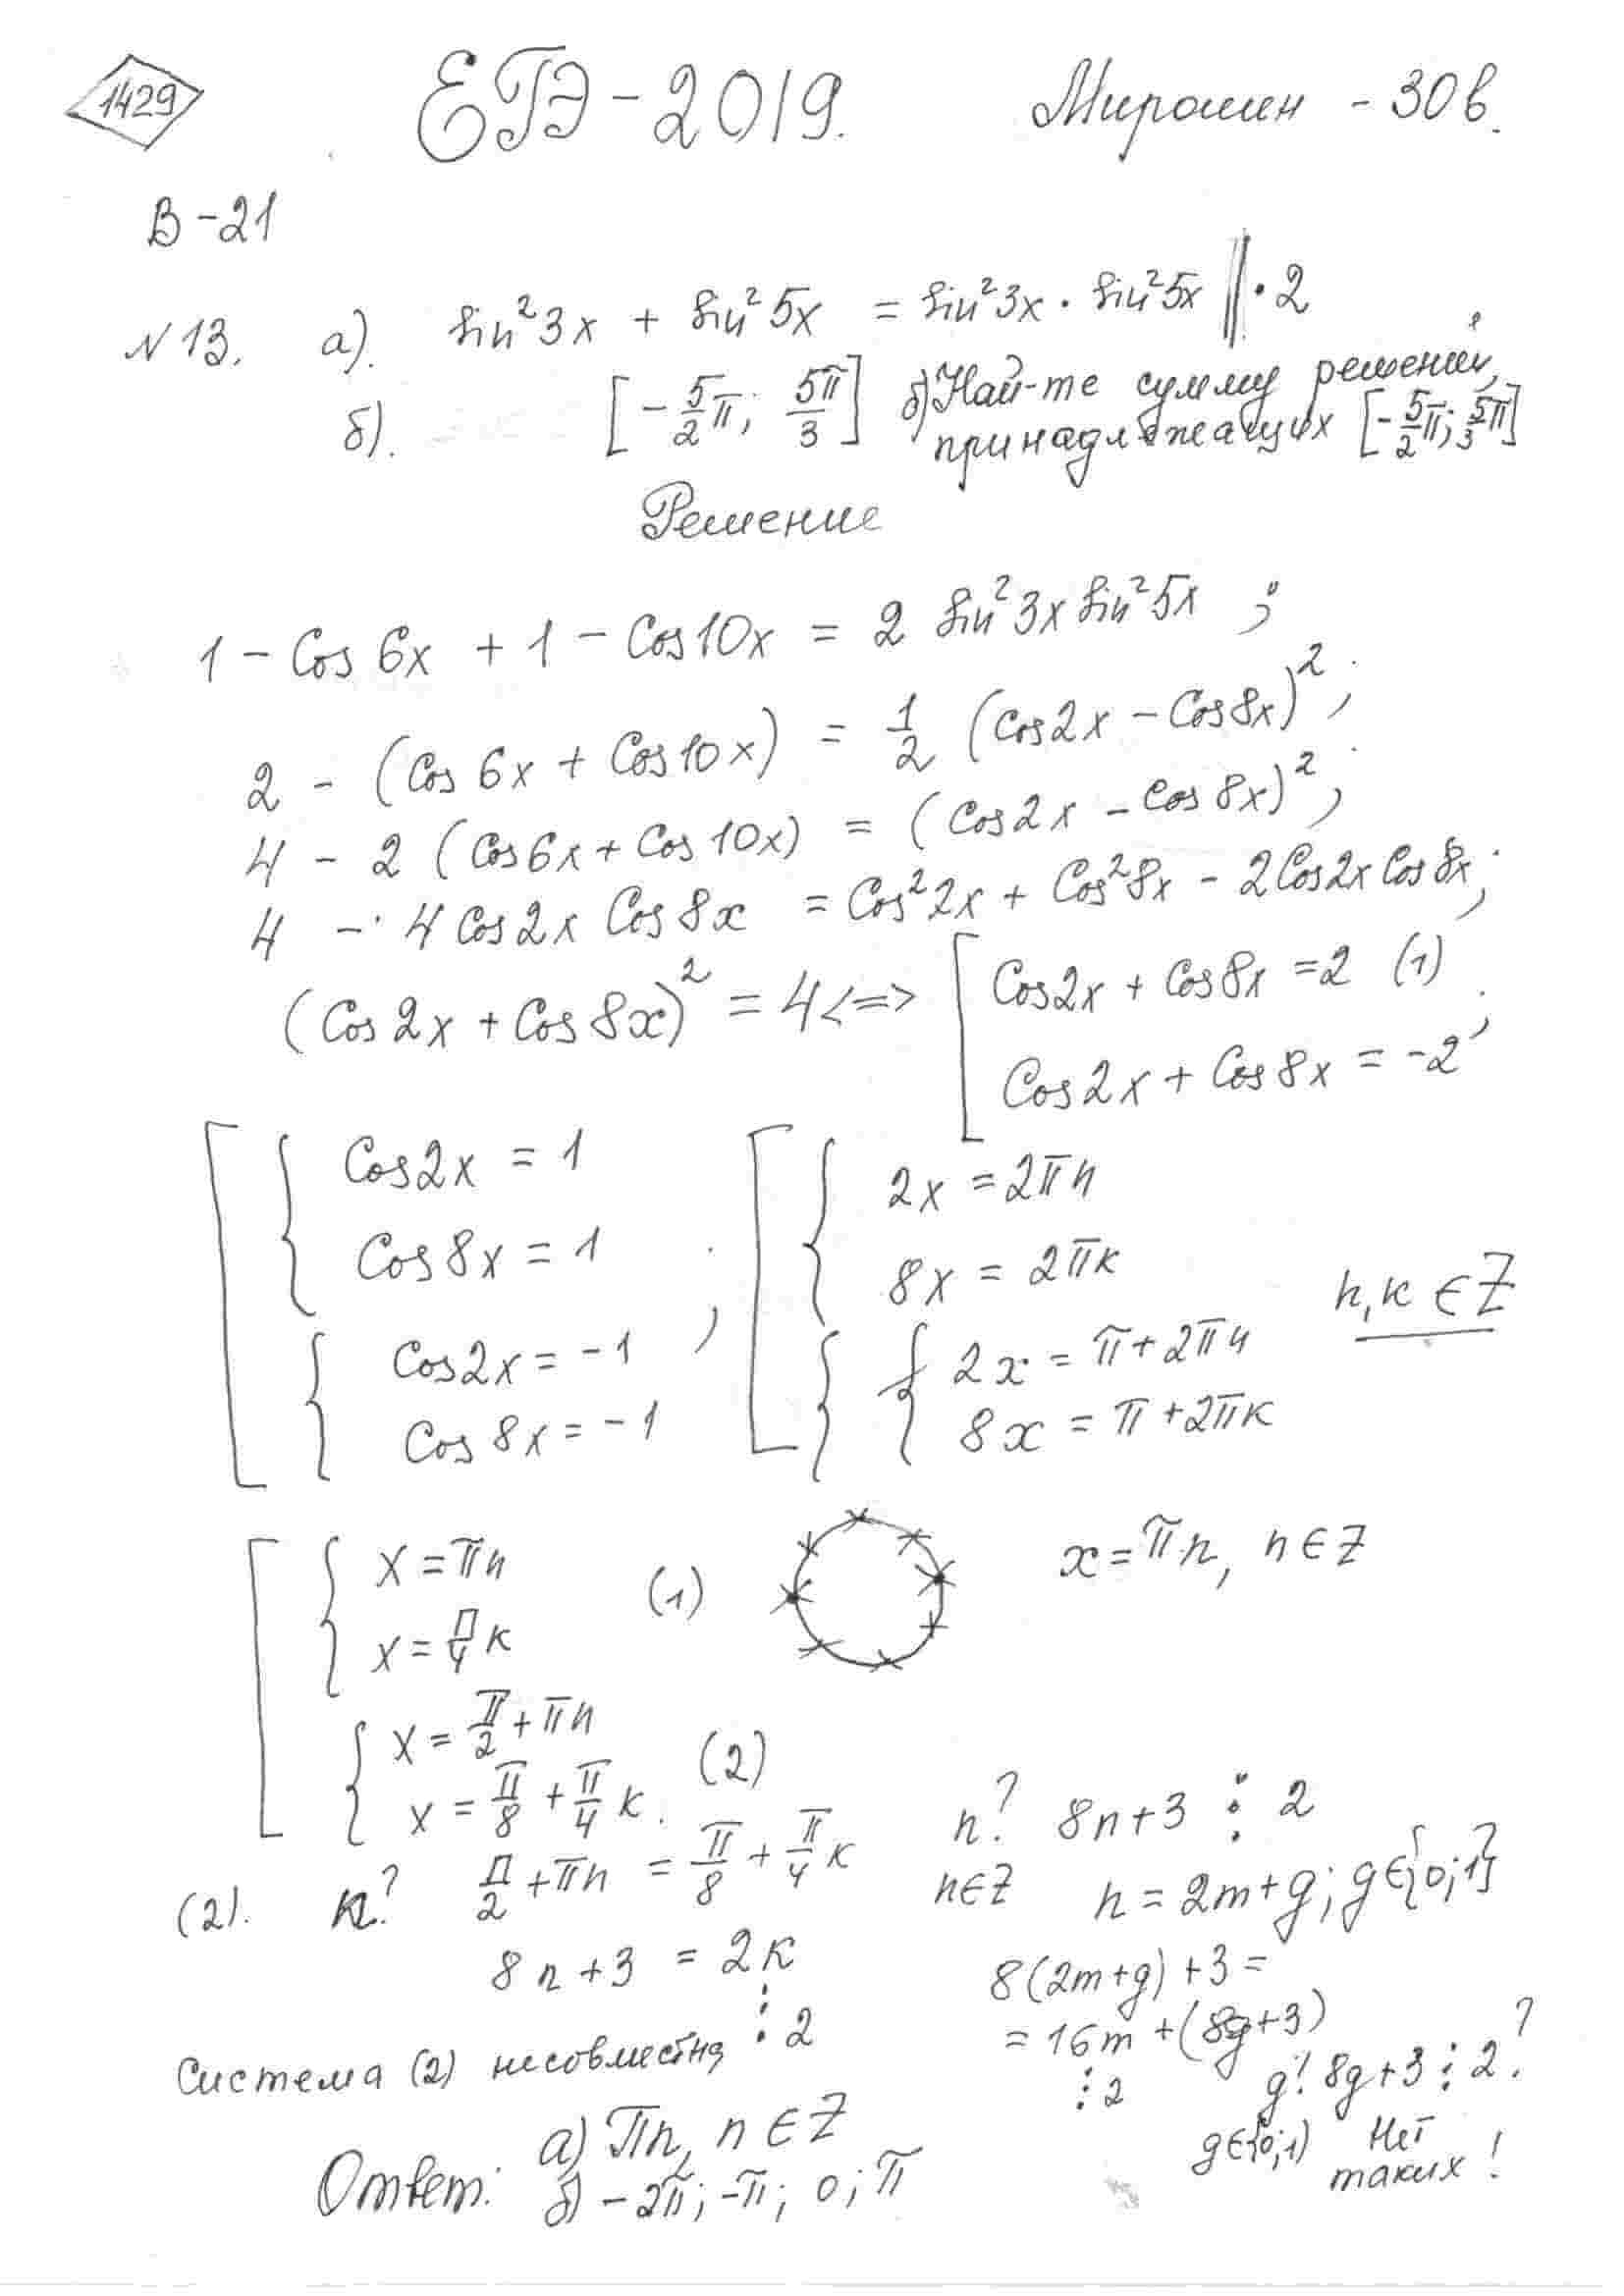 1429
ЕГЭ-2019.
Мирошин - 30в.
В-21
№13. а). sin²3x + sin²5x = sin²3x · sin²5x ‖·2
б). [-5/2π; 5π/3] б) Най-те сумму решений,
принадлежащих [-5/2π; 5/3π]
Решение
1 - Cos6x + 1 - Cos10x = 2 sin²3x sin²5x ;
2 - (Cos6x + Cos10x) = 1/2 (Cos2x - Cos8x)²;
4 - 2 (Cos6x + Cos10x) = (Cos2x - Cos8x)²;
4 - 4Cos2x Cos8x = Cos²2x + Cos²8x - 2Cos2x Cos8x;
(Cos2x + Cos8x)² = 4 <=> [ Cos2x + Cos8x = 2 (1)
Cos2x + Cos8x = -2 ;
[ { Cos2x = 1
Cos8x = 1
{ Cos2x = -1
Cos8x = -1 ;
[ { 2x = 2πn
8x = 2πk
{ { 2x = π + 2πn
8x = π + 2πk
n,k ∈ Z
[ { x = πn
x = П/4 k
(1)
x = πn, n ∈ Z
{ x = π/2 + πn
x = π/8 + π/4 k.
(2)
(2). n? П/2 + πn = π/8 + π/4 k
8n + 3 = 2k
⋮ 2
Система (2) несовместна
n? 8n+3 ⋮ 2
n∈Z n = 2m+g; g∈{0;1}
8(2m+g) + 3 =
= 16m + (8g+3)
⋮ 2
g? 8g+3 ⋮ 2?
g∈{0;1) Нет
таких!
Ответ: а) Пn, n ∈ Z
б) -2π; -π; 0; π